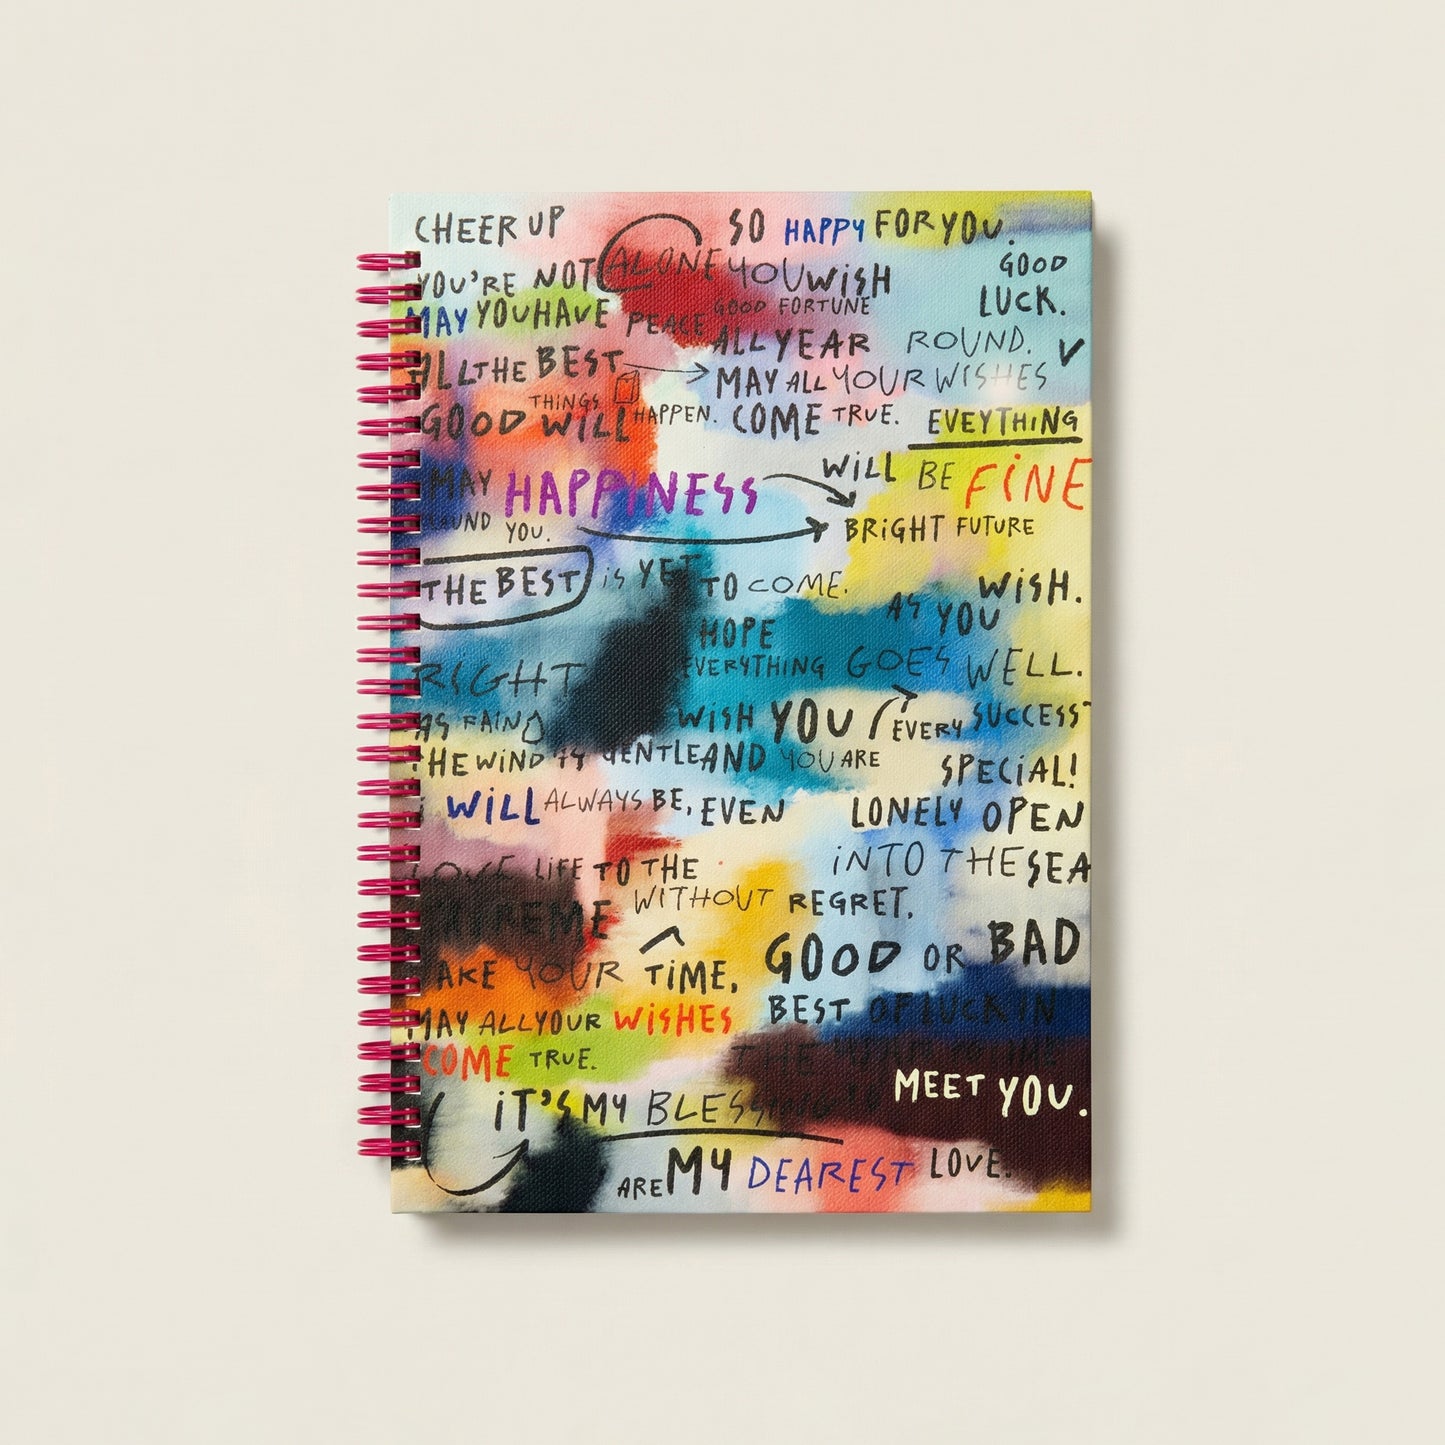 CHEER UP SO HAPPY FOR YOU.
YOU'RE NOT ALONE YOU WISH GOOD LUCK.
MAY YOU HAVE PEACE GOOD FORTUNE
ALL YEAR ROUND.
ALL THE BEST MAY ALL YOUR WISHES
THINGS
GOOD WILL HAPPEN. COME TRUE. EVEYTHING
WILL BE FINE
MAY HAPPINESS
YOU. BRIGHT FUTURE
THE BEST IS YET TO COME. WISH.
AS YOU
HOPE
RIGHT EVERYTHING GOES WELL.
AS WISH YOU EVERY SUCCESS
THE WIND IS GENTLE AND YOU ARE SPECIAL!
I WILL ALWAYS BE, EVEN LONELY OPEN
LOVE LIFE TO THE INTO THE SEA
EXTREME WITHOUT REGRET.
TAKE YOUR TIME, GOOD OR BAD
MAY ALL YOUR WISHES BEST OF LUCK IN
COME TRUE. THE
MEET YOU.
IT'S MY BLESSING TO
ARE MY DEAREST LOVE.